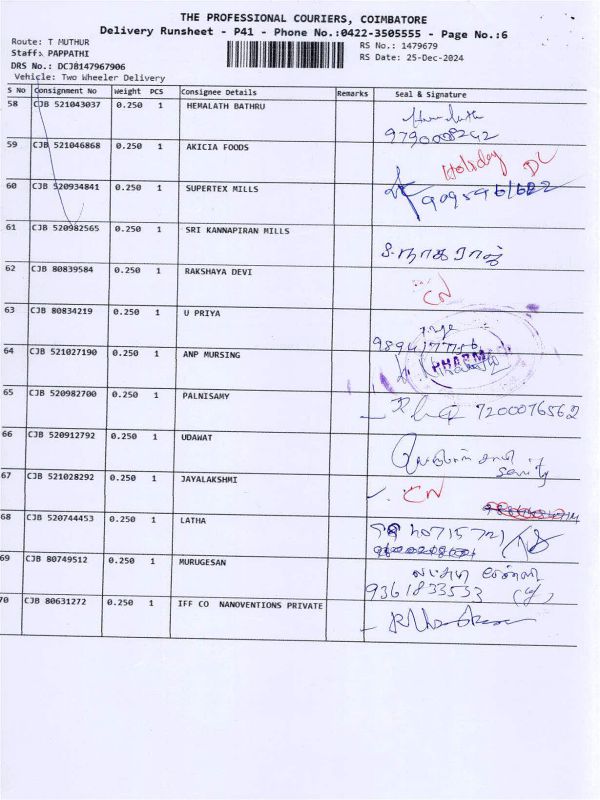 THE PROFESSIONAL COURIERS, COIMBATORE
Delivery Runsheet - P41 - Phone No.:0422-3505555 - Page No.:6
Route: T MUTHUR
RS No.: 1479679
Staff: PAPPATHI
RS Date: 25-Dec-2024
DRS No.: DCJB147967906
Vehicle: Two Wheeler Delivery
S No Consignment No Weight PCS Consignee Details Remarks Seal & Signature
58 CJB 521043037 0.250 1 HEMALATH BATHRU
9790008242
59 CJB 521046868 0.250 1 AKICIA FOODS Holiday DC
60 CJB 520934841 0.250 1 SUPERTEX MILLS
61 CJB 520982565 0.250 1 SRI KANNAPIRAN MILLS
சு.நாகராஜ்
62 CJB 80839584 0.250 1 RAKSHAYA DEVI CN
63 CJB 80834219 0.250 1 U PRIYA
64 CJB 521027190 0.250 1 ANP MURSING PHARM
65 CJB 520982700 0.250 1 PALNISAMY 7200076562
66 CJB 520912792 0.250 1 UDAWAT
67 CJB 521028292 0.250 1 JAYALAKSHMI CN
68 CJB 520744453 0.250 1 LATHA
69 CJB 80749512 0.250 1 MURUGESAN
9361833533
70 CJB 80631272 0.250 1 IFF CO NANOVENTIONS PRIVATE